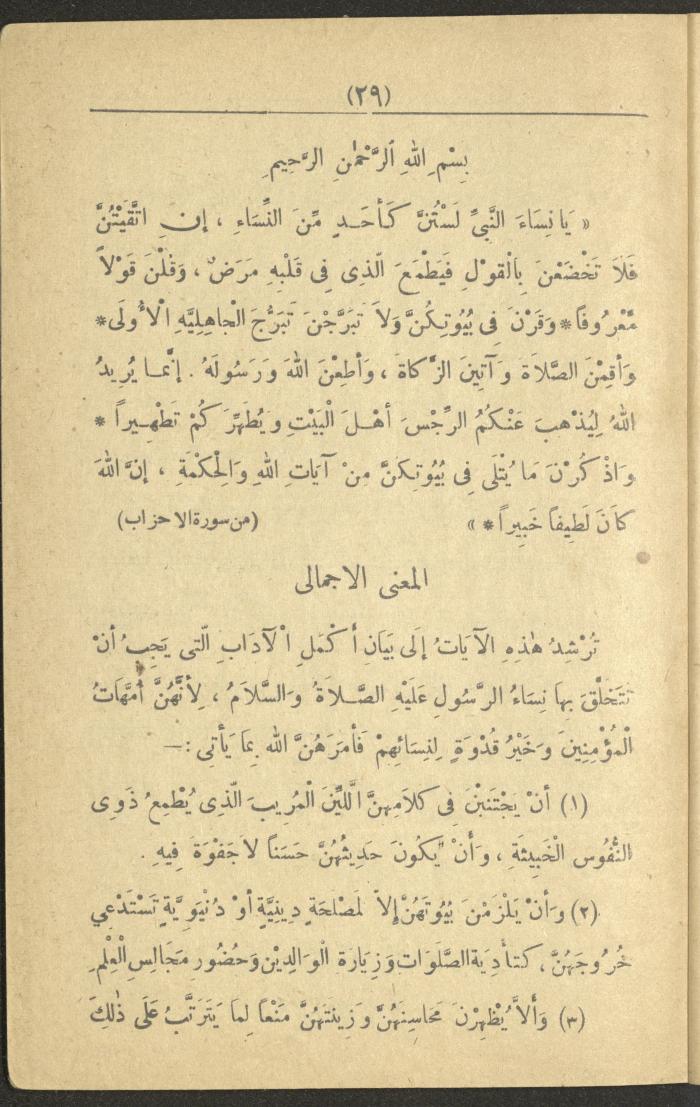 (٢٩)
بِسْمِ اللهِ الرَّحْمٰنِ الرَّحِيمِ
« يَا نِسَاءَ النَّبِيِّ لَسْتُنَّ كَأَحَدٍ مِّنَ النِّسَاءِ ، إِنِ اتَّقَيْتُنَّ
فَلَا تَخْضَعْنَ بِالْقَوْلِ فَيَطْمَعَ الَّذِى فِى قَلْبِهِ مَرَضٌ ، وَقُلْنَ قَوْلاً
مَّعْرُوفاً * وَقَرْنَ فِى بُيُوتِكُنَّ وَلاَ تَبَرَّجْنَ تَبَرُّجَ الْجاَهِلِيَّهِ الْأُولَى *
وَأَقِمْنَ الصَّلاَةَ وَآتِينَ الزَّكاَةَ ، وَأَطِعْنَ اللهَ وَرَسُولَهُ . إِنَّمَا يُرِيدُ
اللهُ لِيُذْهِبَ عَنْكُمُ الرِّجْسَ أَهْلَ الْبَيْتِ وَيُطَهِّرَكُمْ تَطْهِيراً *
وَاذْكُرْنَ مَا يُتْلَى فِى بُيُوتِكُنَّ مِنْ آيَاتِ اللهِ وَالْحِكْمَةِ ، إِنَّ اللهَ
كاَنَ لَطِيفاً خَبِيراً * » (من سورة الاحزاب)
المعنى الاجمالى
تُرْشِدُ هٰذِهِ الآيَاتُ إِلَى بَيَانِ أَكْمَلِ الْآدَابِ الَّتى يَجِبُ أَنْ
تَتَخَلَّقَ بِهَا نِسَاءُ الرَّسُولِ عَلَيْهِ الصَّلاَةُ وَالسَّلاَمُ ، لِأَنَّهُنَّ أُمَّهَاتُ
الْمُؤْمِنِينَ وَخَيْرُ قُدْوَةٍ لِنِسَائِهِمْ فَأَمَرَهُنَّ الله بِمَا يَأْتِى :—
(١) أَنْ يَجْتَنِبْنَ فِى كَلاَمِهِنَّ اللَّيِّنَ الْمُرِيبَ الَّذِى يُطْمِعُ ذَوِى
النُّفُوسِ الْخَبِيثَةِ ، وَأَنْ يَكُونَ حَدِيثُهُنَّ حَسَناً لاَ جَفْوَةَ فِيهِ .
(٢) وَأَنْ يَلْزَمْنَ بُيُوتَهُنَّ إِلاَّ لِمَصْلَحَةٍ دِينِيَّةٍ أَوْ دُنْيَوِيَّةٍ تَسْتَدْعِي
خُرُوجَهُنَّ ، كَتَأْدِيَةِ الصَّلَوَاتِ وَزِيَارَةِ الْوَالِدِيْنِ وَحُضُورِ مَجَالِسِ الْعِلْمِ
(٣) وَأَلاَّ يُظْهِرْنَ مَحَاسِنَهُنَّ وَزِينَتَهُنَّ مَنْعاً لِمَا يَتَرَتَّبُ عَلَى ذٰلِكَ